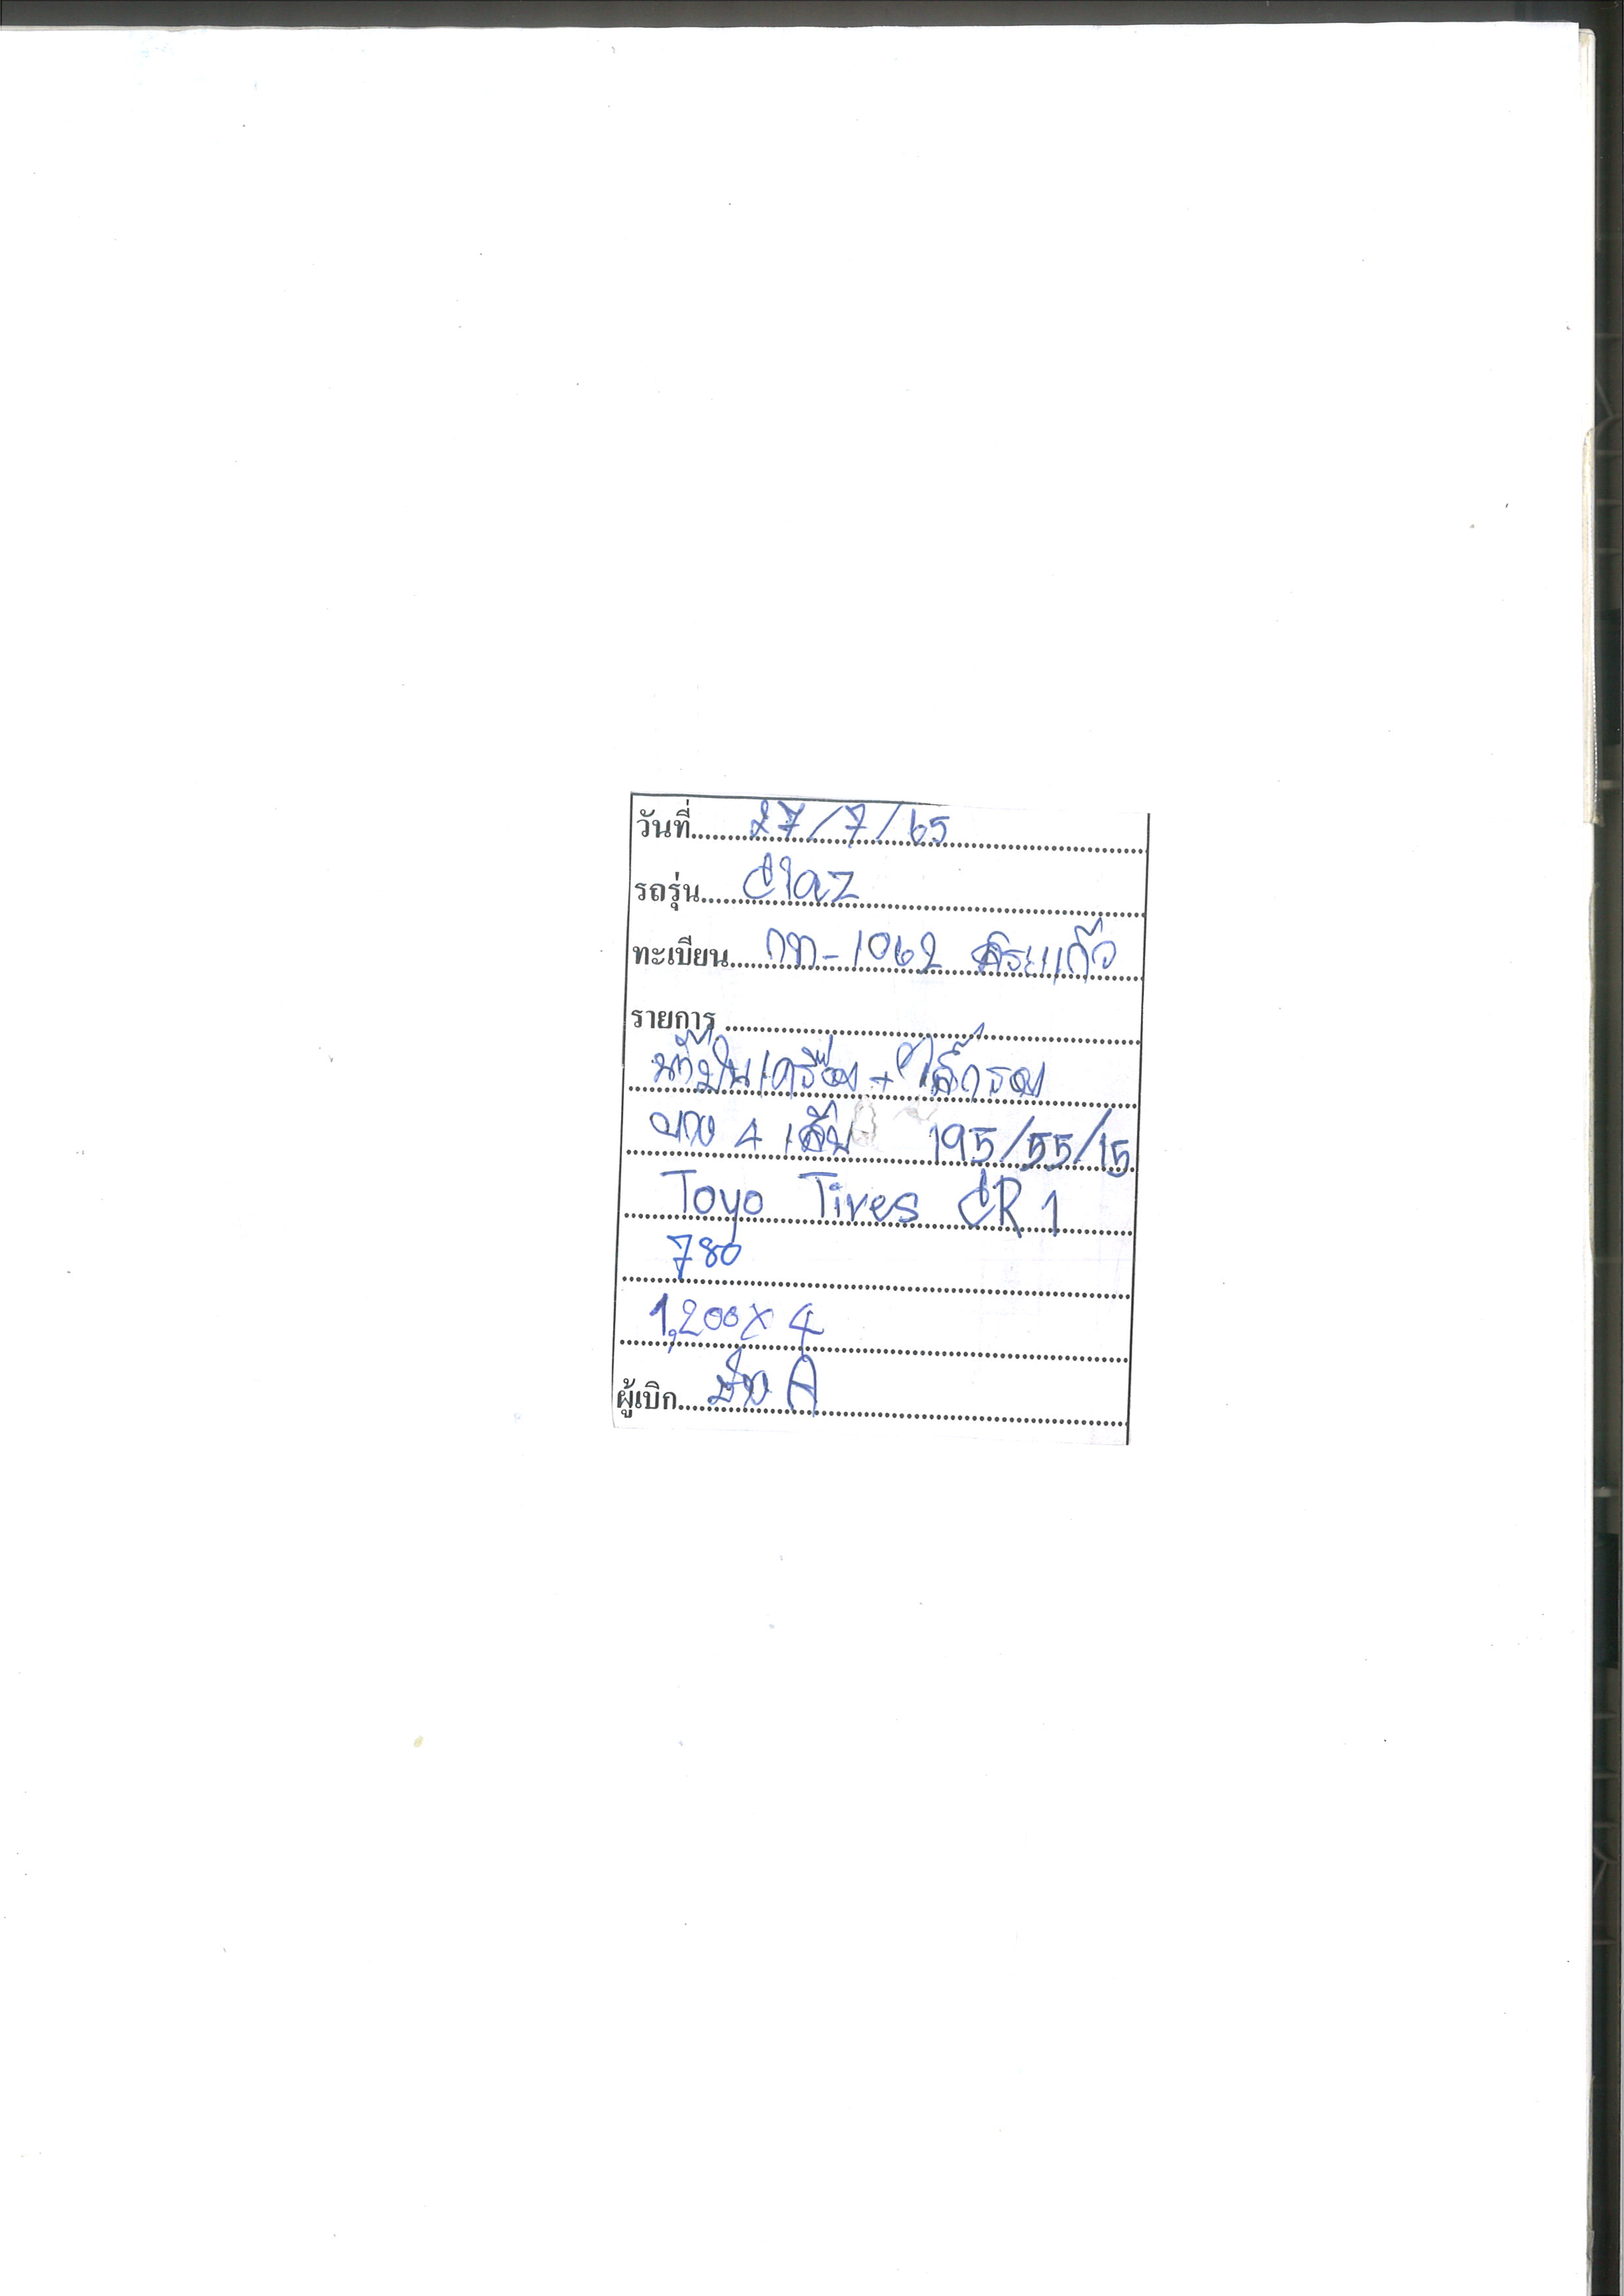 วันที่ 27/7/65
รถรุ่น Ciaz
ทะเบียน กท-1062 สระแก้ว
รายการ
น้ำมันเครื่อง + ไส้กรอง
ยาง 4 เส้น 195/55/15
Toyo Tires CR1
780
1,200 x 4
ผู้เบิก A